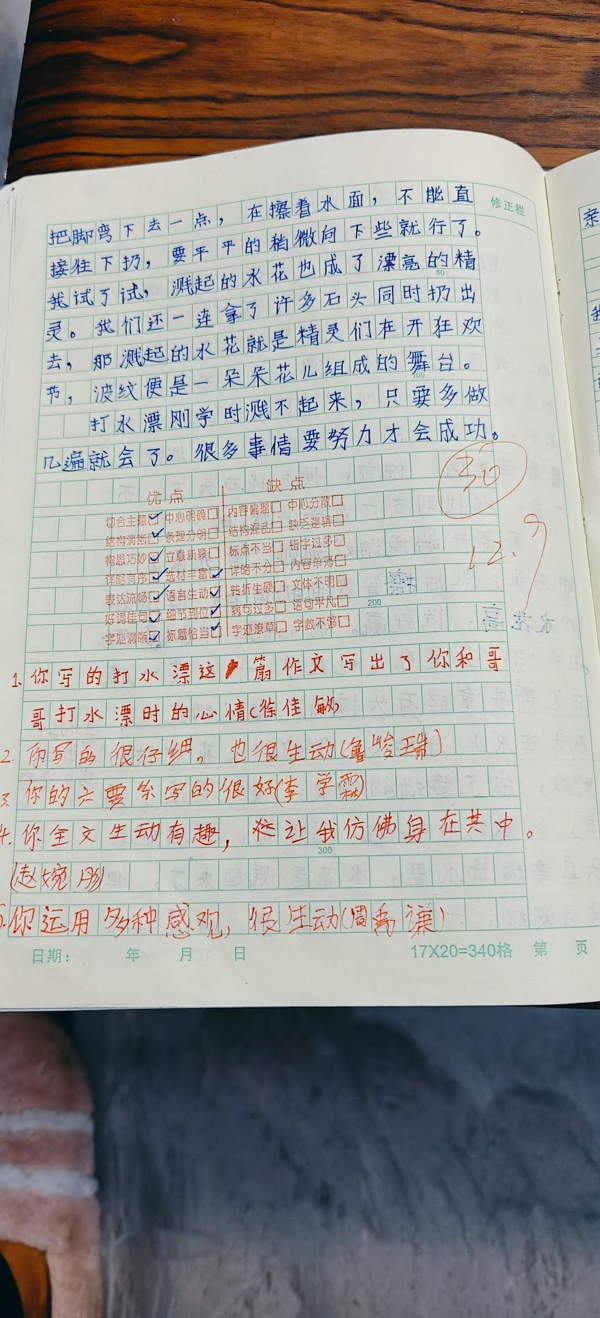 把脚弯下去一点，在擦着水面，不能直
接往下扔，要平平的稍微向下些就行了。
我试了试，溅起的水花也成了漂亮的精
灵。我们还一连拿了许多石头同时扔出
去，那溅起的水花就是精灵们在开狂欢
节，波纹便是一朵朵花儿组成的舞台。
打水漂刚学时溅不起来，只要多做
几遍就会了。很多事情要努力才会成功。
修正栏
30
12.9
优点 缺点
切合主题 中心明确 内容偏题 中心分散
结构清晰 条理分明 结构混乱 缺乏逻辑
构思巧妙 立意新颖 标点不当 错字过多
详略得当 选材丰富 详略不分 内容单薄
表达流畅 语言生动 转折生硬 文体不明
好词佳句 细节到位 病句过多 语句平凡
字迹清晰 标题恰当 字迹潦草 字数不够
200
1.你写的打水漂这篇作文写出了你和哥
哥打水漂时的心情(徐佳敏)
2.你写的很仔细。也很生动(鲁峻瑞)
3.你的六要素写的很好(李学霖)
4.你全文生动有趣，让我仿佛身在其中。
300
(赵婉彤)
5.你运用多种感观，很生动(周禹谦)
日期： 年 月 日 17X20=340格 第 页